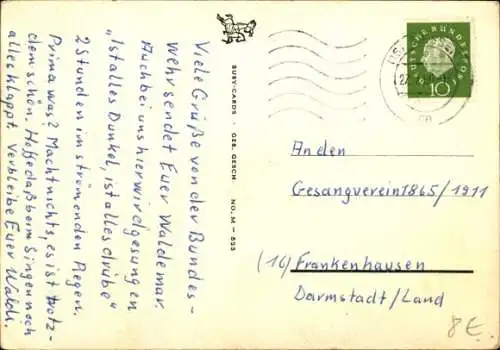 Viele Grüße von der Bundes-
wehr sendet Euer Waldemar.
Auch bei uns hier wird gesungen
"Ist alles Dunkel, ist alles drübe"
2 Stunden im strömenden Regen.
Prima was? Macht nichts, es ist trotz-
dem schön. Hoffe daß beim Singen noch
alles klappt. Verbleibe Euer Wald.
BUSY-CARDS · GES. GESCH. NO. M - 853
DEUTSCHE BUNDESPOST
10
An den
Gesangverein 1865/1911
(16) Frankenhausen
Darmstadt/Land
8€